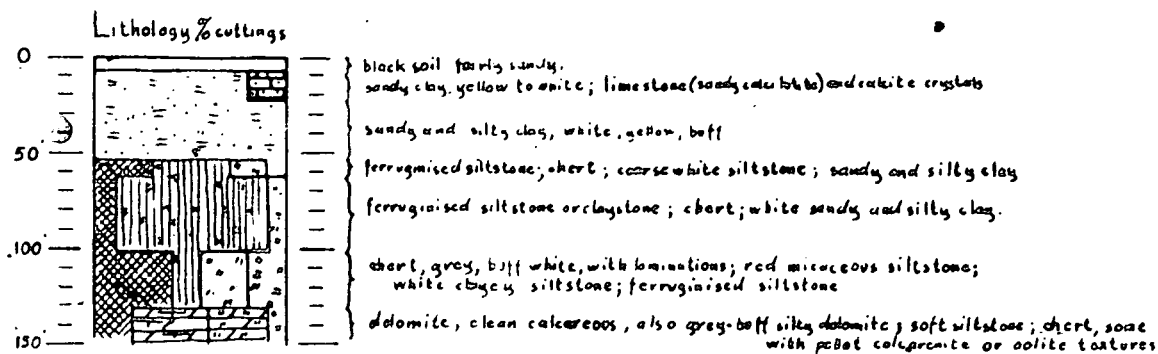 Lithology % cuttings
0
black soil fairly sandy.
sandy clay, yellow to white; limestone (sandy calcilutite) and calcite crystals
sandy and silty clay, white, yellow, buff
50
ferruginised siltstone; chert; coarse white siltstone; sandy and silty clay
ferruginised siltstone or claystone; chert; white sandy and silty clay.
100
chert, grey, buff white, with laminations; red micaceous siltstone;
white clayey siltstone; ferruginised siltstone
dolomite, clean calcareous, also grey-buff silty dolomite; soft siltstone; chert, some
150
with pellet calcarenite or oolite textures